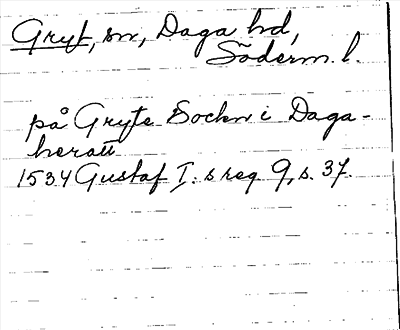 Gryt, sn, Daga hd,
Söderm. l.
på Gryte Sockn i Daga-
heratt
1534 Gustaf I:s reg 9, s. 37.